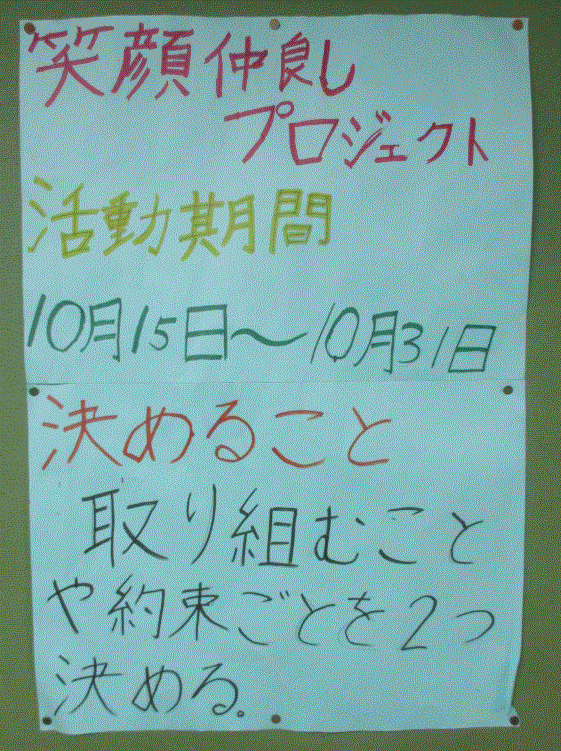 笑顔仲良し
プロジェクト
活動期間
10月15日～10月31日
決めること
取り組むこと
や約束ごとを2つ
決める。